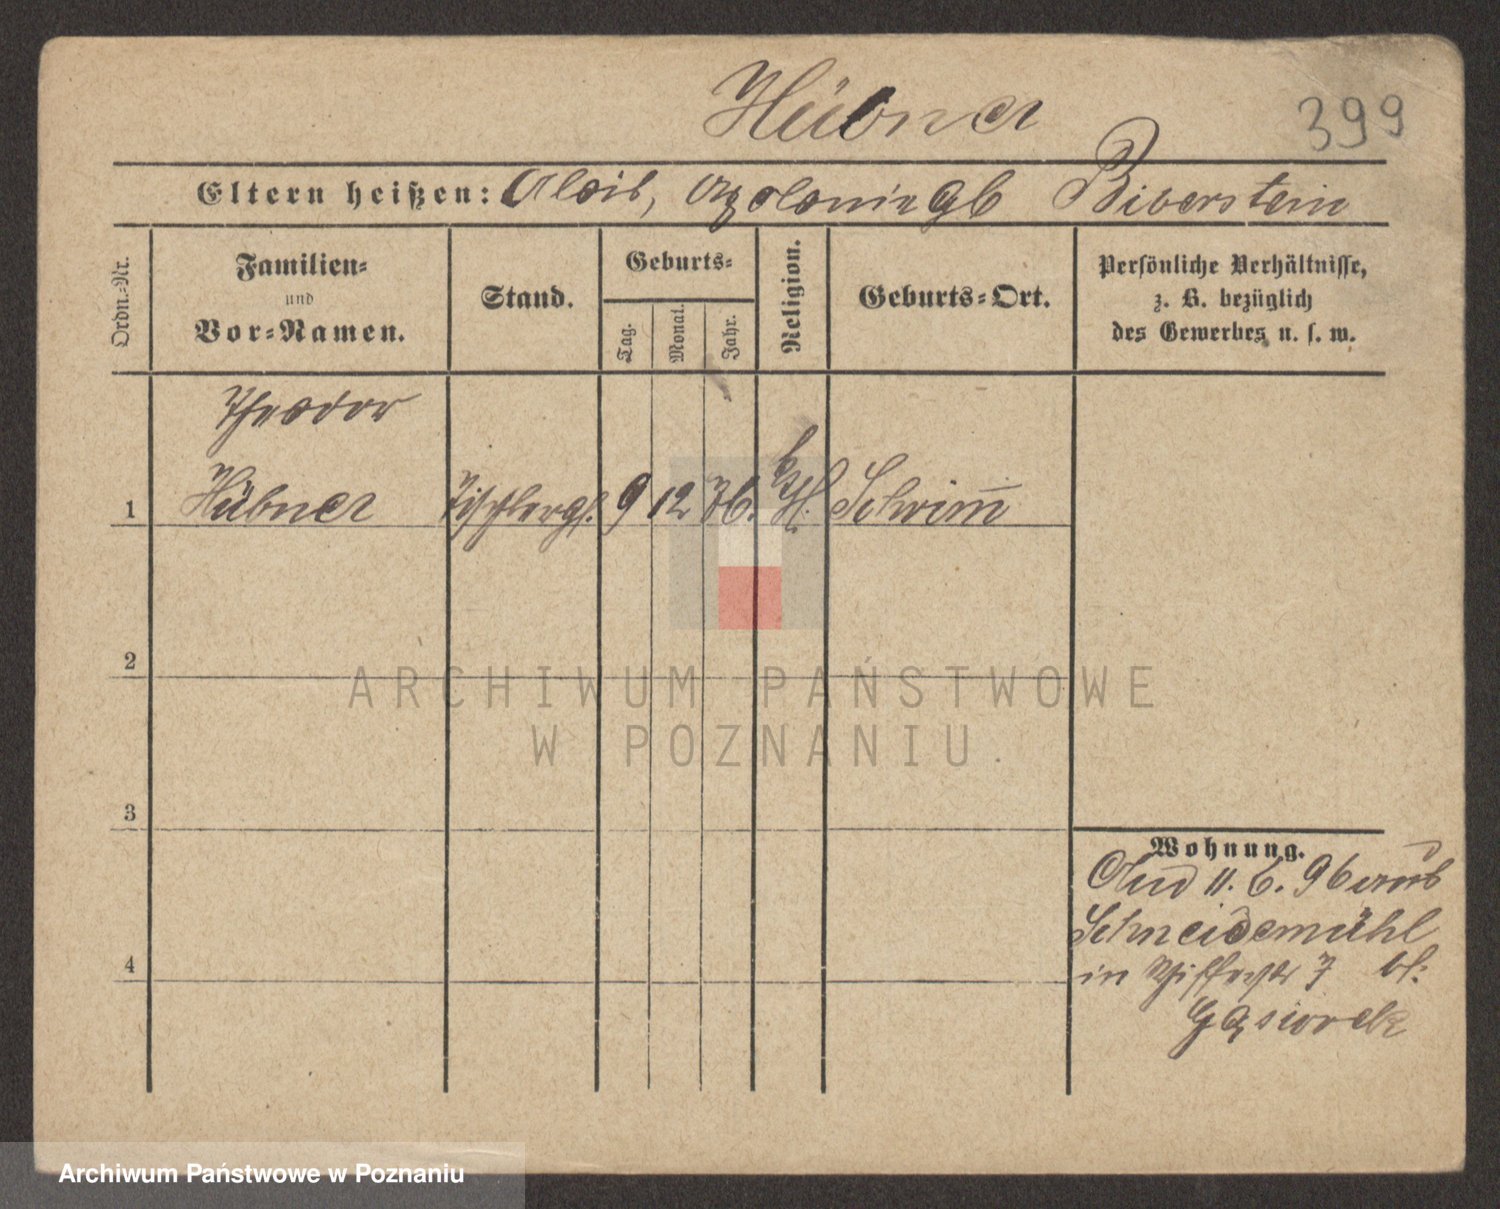 Hübner
399
Eltern heißen: Alois, Apolonia gb Biberstein
Ordn.-Nr.
Familien-
und
Vor-Namen.
Stand.
Geburts-
Tag.
Monat.
Jahr.
Religion.
Geburts-Ort.
Persönliche Verhältnisse,
z. B. bezüglich
des Gewerbes u. s. w.
Theodor
1 Hübner Tischlergs. 9 12 76. Schrimm
2
3
4
Wohnung.
11. 6. 96
Schneidemühl
in 7 bei
Gąsiorek
ARCHIWUM PAŃSTWOWE
W POZNANIU
Archiwum Państwowe w Poznaniu